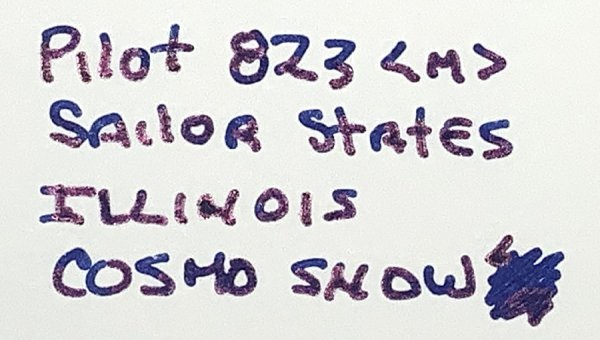 Pilot 823 <M>
Sailor States
Illinois
Cosmo Snow